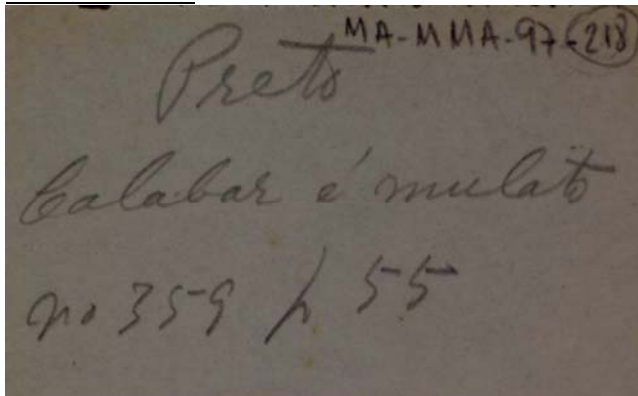 MA-MMA-97-218
Preto
Calabar é mulato
no 359 p 55